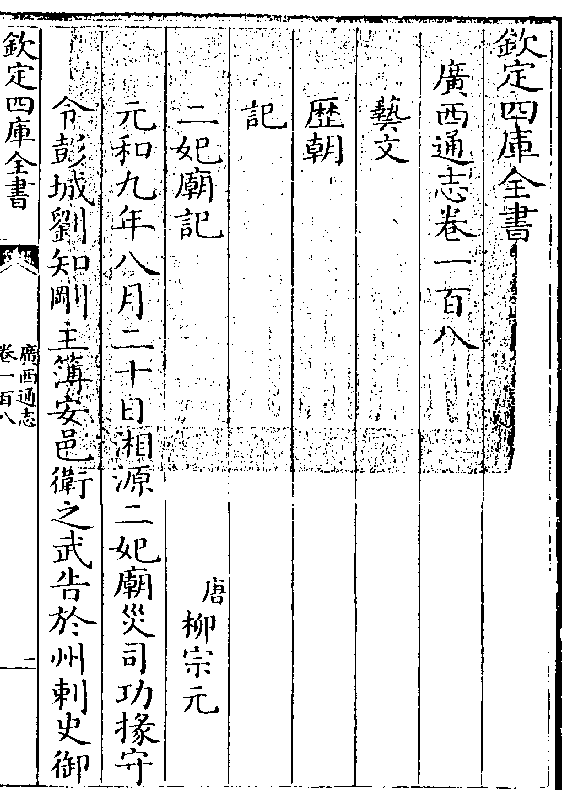 欽定四庫全書
廣西通志卷一百八
藝文
歴朝
記
二妃廟記
唐
柳宗元
元和九年八月二十日湘源二妃廟災司功掾守
令彭城劉知剛主簿安邑衛之武告於州刺史御
欽定四庫全書
廣西通志
卷一百八
一